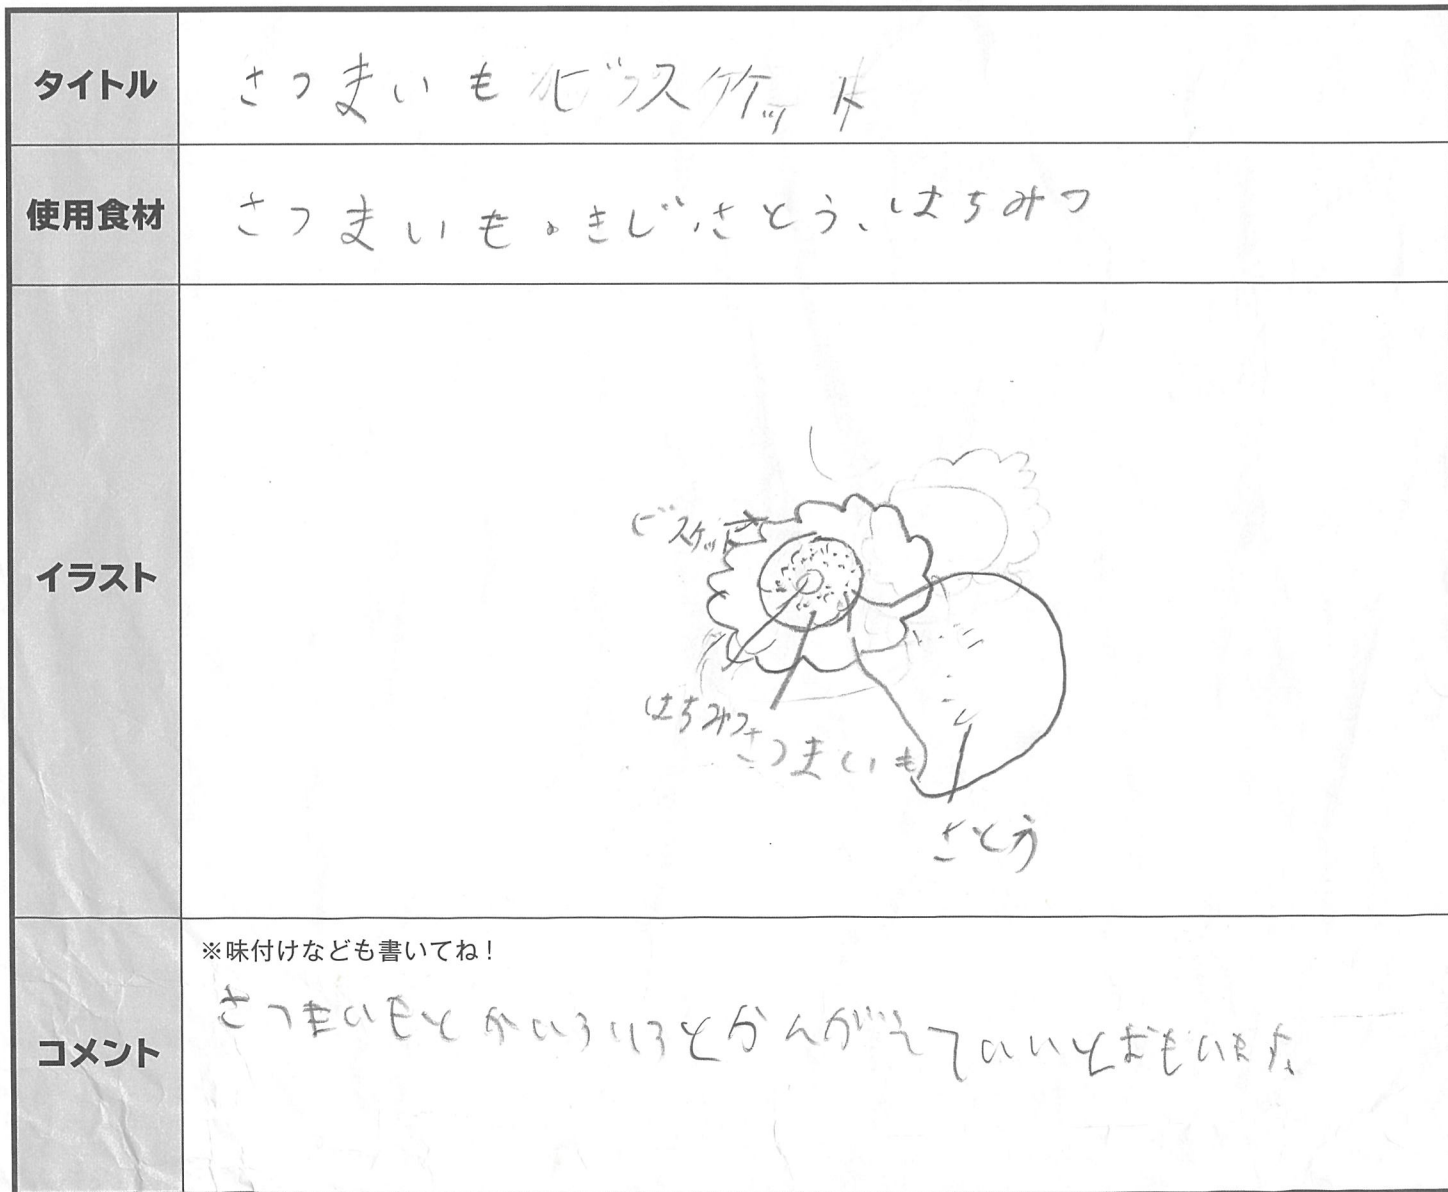 タイトル
さつまいもビスケット
使用食材
さつまいも。きじ、さとう、はちみつ
イラスト
ビスケット
はちみつ
さつまいも
さとう
コメント
※味付けなども書いてね！
さつまいもとかいろいろとかんがえていいとおもいます。